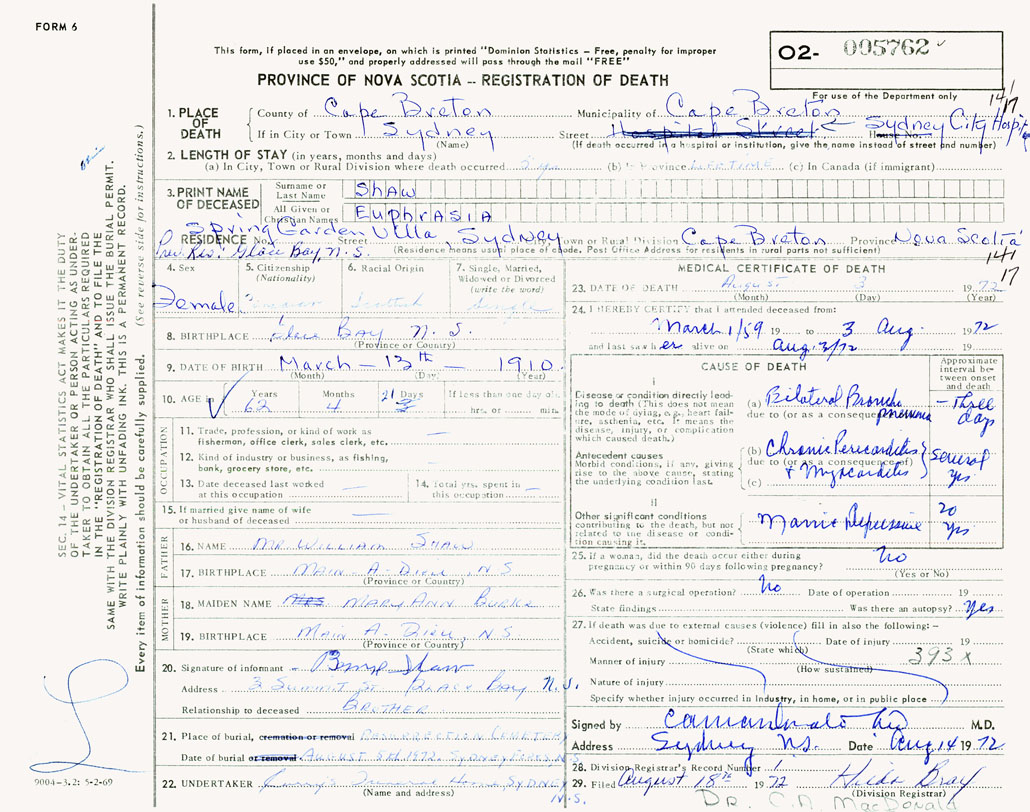 FORM 6
This form, if placed in an envelope, on which is printed "Dominion Statistics – Free, penalty for improper
use $50," and properly addressed will pass through the mail "FREE"
PROVINCE OF NOVA SCOTIA -- REGISTRATION OF DEATH
02- 005762
For use of the Department only
141
17
1. PLACE OF DEATH
County of Cape Breton Municipality of Cape Breton
If in City or Town Sydney Street Hospital Street House No. Sydney City Hospital
(Name) (If death occurred in a hospital or institution, give the name instead of street and number)
2. LENGTH OF STAY (in years, months and days)
(a) In City, Town or Rural Division where death occurred (b) In Province LIFETIME (c) In Canada (if immigrant)
3. PRINT NAME OF DECEASED
Surname or Last Name SHAW
All Given or Christian Names EUPHRASIA
Spring Garden Villa, Sydney
RESIDENCE No. Street Town or Rural Division Cape Breton Province Nova Scotia
Prev. Res. Glace Bay, N.S. (Residence means usual place of abode. Post Office Address for residents in rural parts not sufficient)
141
17
4. Sex
Female
5. Citizenship
(Nationality)
6. Racial Origin
Scottish
7. Single, Married, Widowed or Divorced
(write the word)
Single
8. BIRTHPLACE Glace Bay N.S.
(Province or Country)
9. DATE OF BIRTH March – 13th – 1910
(Month) (Day) (Year)
10. AGE in Years Months 21 Days If less than one day old
62 4 hrs. or min.
OCCUPATION
11. Trade, profession, or kind of work as
fisherman, office clerk, sales clerk, etc. —
12. Kind of industry or business, as fishing,
bank, grocery store, etc. —
13. Date deceased last worked
at this occupation —
14. Total yrs. spent in
this occupation —
15. If married give name of wife
or husband of deceased —
FATHER
16. NAME MR. WILLIAM SHAW
17. BIRTHPLACE MAIN A. DIEU, N.S
(Province or Country)
MOTHER
18. MAIDEN NAME MRS MARY ANN BURKE
19. BIRTHPLACE MAIN A. DIEU, N.S.
(Province or Country)
20. Signature of informant Shaw
Address 3 SUMMIT ST GLACE BAY N.S.
Relationship to deceased BROTHER
21. Place of burial, cremation or removal CEMETERY
Date of burial or removal AUGUST 5th, 1972. SYDNEY N.S.
22. UNDERTAKER SYDNEY
(Name and address) N.S.
MEDICAL CERTIFICATE OF DEATH
23. DATE OF DEATH August 3 1972
(Month) (Day) (Year)
24. I HEREBY CERTIFY that I attended deceased from:
March 1/59 19 to 3 Aug. 1972
and last saw her alive on Aug. 3/72 19
CAUSE OF DEATH
Approximate interval between onset and death
I
Disease or condition directly leading to death (This does not mean the mode of dying, e.g., heart failure, asthenia, etc. It means the disease, injury, or complication which caused death.)
(a) Bilateral Broncho
due to (or as a consequence of) pneumonia
– Three days
Antecedent causes
Morbid conditions, if any, giving rise to the above cause, stating the underlying condition last.
(b) Chronic Pericarditis
due to (or as a consequence of)
(c) & Myocarditis
several yrs
II
Other significant conditions contributing to the death, but not related to the disease or condition causing it.
Manic Depressive
20 yrs
25. If a woman, did the death occur either during
pregnancy or within 90 days following pregnancy? No
(Yes or No)
26. Was there a surgical operation? No Date of operation 19
State findings Was there an autopsy? yes
27. If death was due to external causes (violence) fill in also the following: –
Accident, suicide or homicide? Date of injury 19
(State which)
Manner of injury 393x
(How sustained)
Nature of injury
Specify whether injury occurred in Industry, in home, or in public place
Signed by M.D.
Address Sydney N.S. Date Aug 14 1972
28. Division Registrar's Record Number 1
29. Filed August 18th 1972 Hilda Bray
(Division Registrar)
DR. C.A. MacDonald
SEC. 14 – VITAL STATISTICS ACT MAKES IT THE DUTY
OF THE UNDERTAKER OR PERSON ACTING AS UNDERTAKER TO OBTAIN ALL THE PARTICULARS REQUIRED
IN THE "REGISTRATION OF DEATH" AND TO FILE THE
SAME WITH THE DIVISION REGISTRAR WHO SHALL ISSUE THE BURIAL PERMIT.
WRITE PLAINLY WITH UNFADING INK. THIS IS A PERMANENT RECORD.
Every item of information should be carefully supplied. (See reverse side for instructions.)
9004-3.2: 5-2-69